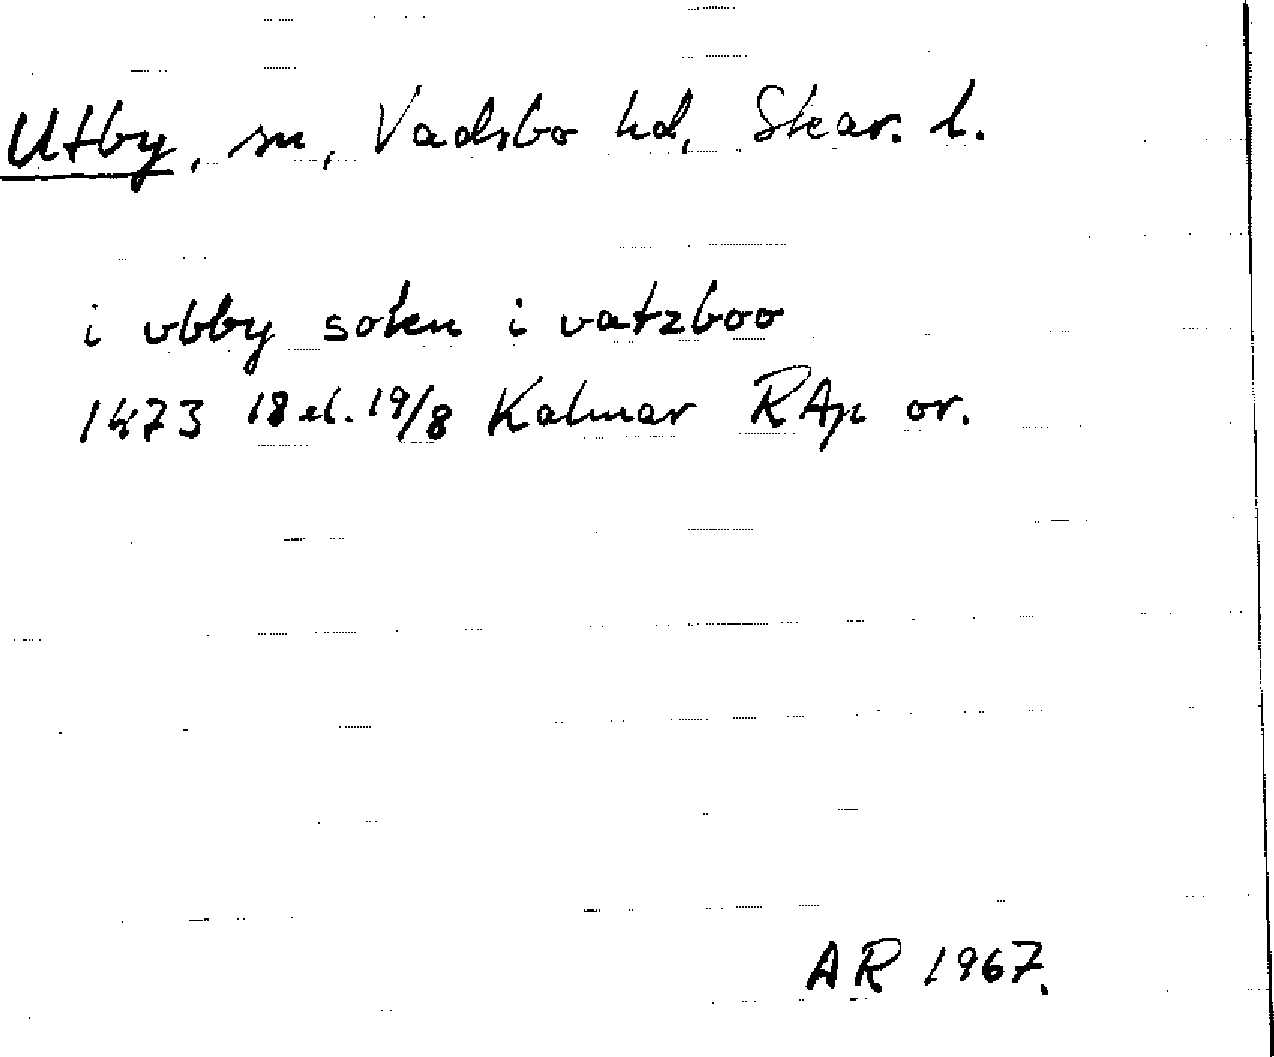 Utby, sn, Vadsbo hd, Skar. l.
i vbby soken i vatzboo
1473 18 el. 19/8 Kalmar RAp or.
AR 1967.